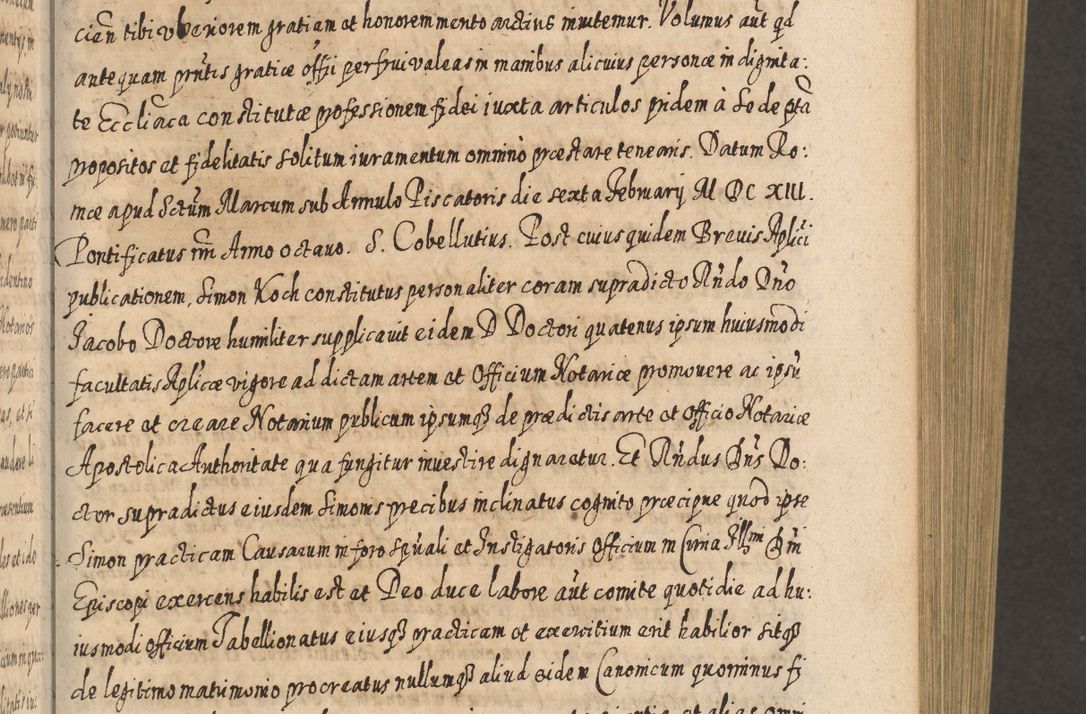 cien tibi vberiorem gratiam et honorem mento arctius inuitemur. Volumus aũt qđ
antequam pñtis gratiæ offii perfrui valeas in manibus alicuius personæ in dignita:
te Eccliãca constitutæ professionem fidei iuxta articulos pidem à Sede pta
propositos et fidelitatis solitum iuramentum omnino præstare tenearis. Datum Ro:
mæ apud Sctũm Marcum sub Annulo Piscatoris die sexta Februarij M DC XIII.
Pontificatus nri Anno octauo. S. Cobellutius. Post cuius quidem Breuis Aplici
publicationem, Simon Koch constitutus personaliter coram supradicto Rñdo Dño
Jacobo Doctore humiliter supplicauit eidem D Doctori quatenus ipsum huiusmodi
facultatis Aplicæ vigore ad dictam artem et Officium Notariæ promouere ac ipsũ
facere et creare Notarium publicum ipsumq3 de prædictis arte et officio Notariæ
Apostolica Authoritate qua fungitur inuestire dignaretur. Et Rñdus Dñs Do:
ctor supradictus eiusdem Simonis precibus inclinatus cognito præcipue quod ipse
Simon practicam Causarum in foro Spũali et Instigatoris Officium in Curia Illmi Dni
Episcopi exercens habilis est et Deo duce labore aũt comite quotidie ad hu:
iusmodi officium Tabellionatus eiusq3 practicam et exercitium erit habilior sitq3
de legitimo matrimonio procreatus nullumq3 aliud eidem Canonicum quominus fi
et alias omni